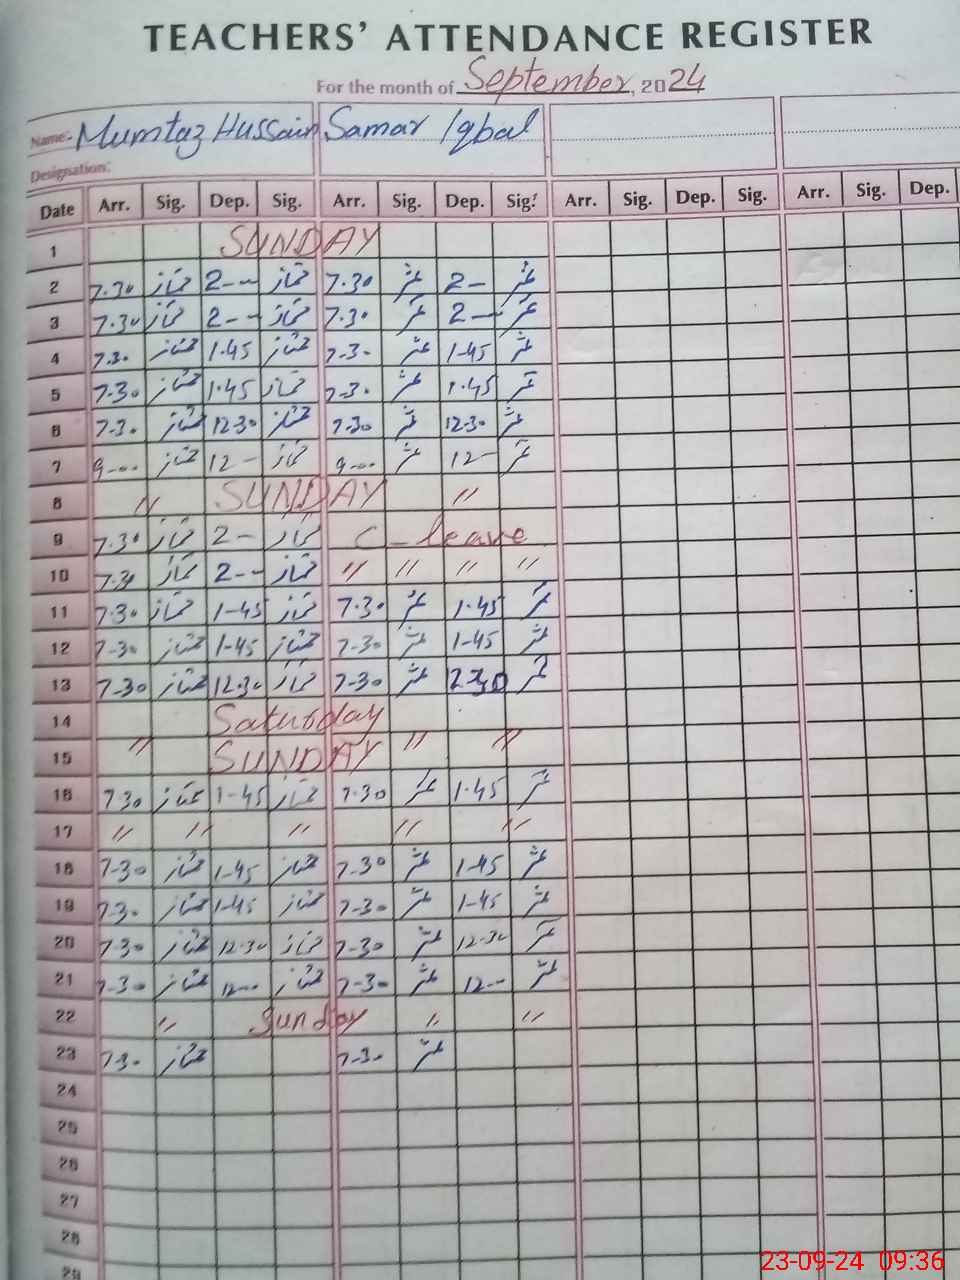 TEACHERS' ATTENDANCE REGISTER
For the month of September, 2024
Name: Mumtaz Hussain Samar Iqbal
Designation:
Date Arr. Sig. Dep. Sig. Arr. Sig. Dep. Sig. Arr. Sig. Dep. Sig. Arr. Sig. Dep.
1 SUNDAY
2 7.30 ممتاز 2-- ممتاز 7.30 2-
3 7.30 ممتاز 2-- ممتاز 7.30 2-
4 7.30 ممتاز 1.45 ممتاز 7-30 1-45
5 7.30 ممتاز 1.45 ممتاز 7-30 1.45
6 7-30 ممتاز 12-30 ممتاز 7-30 12.30
7 9-00 ممتاز 12- ممتاز 9-00 12-
8 " SUNDAY "
9 7.30 ممتاز 2- ممتاز C-leave
10 7.30 ممتاز 2-- ممتاز " " " "
11 7.30 ممتاز 1-45 ممتاز 7.30 1.45
12 7-30 ممتاز 1-45 ممتاز 7-30 1-45
13 7-30 ممتاز 12.30 ممتاز 7-30 12-30
14 Saturday
15 " SUNDAY " "
16 7.30 ممتاز 1-45 ممتاز 7.30 1.45
17 " " " " "
18 7-30 ممتاز 1-45 ممتاز 7-30 1-45
19 7-30 ممتاز 1-45 ممتاز 7-30 1-45
20 7-30 ممتاز 12.30 ممتاز 7-30 12-30
21 7-30 ممتاز 12-- ممتاز 7-30 12--
22 " Sunday " "
23 7-30 ممتاز 7-30
24
25
26
27
28
29
23-09-24 09:36